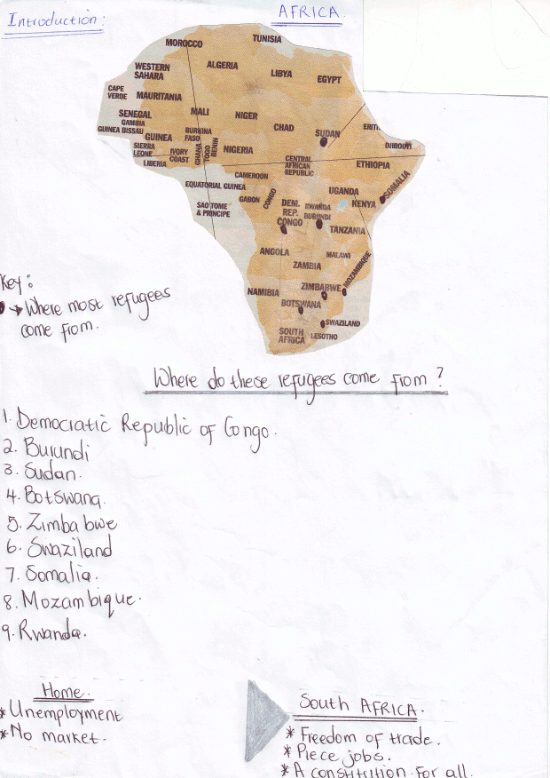 Introduction:
AFRICA.
MOROCCO
TUNISIA
ALGERIA
LIBYA
EGYPT
WESTERN
SAHARA
CAPE
VERDE
MAURITANIA
MALI
NIGER
CHAD
SUDAN
ERIT
DJIBOUTI
SENEGAL
GAMBIA
GUINEA BISSAU
GUINEA
BURKINA
FASO
SIERRA
LEONE
LIBERIA
IVORY
COAST
GHANA
TOGO
BENIN
NIGERIA
CENTRAL
AFRICAN
REPUBLIC
ETHIOPIA
SOMALIA
CAMEROON
EQUATORIAL GUINEA
GABON
CONGO
SAO TOME
& PRINCIPE
DEM.
REP.
CONGO
UGANDA
RWANDA
BURUNDI
KENYA
TANZANIA
ANGOLA
ZAMBIA
MALAWI
MOZAMBIQUE
NAMIBIA
ZIMBABWE
BOTSWANA
SWAZILAND
SOUTH
AFRICA
LESOTHO
Key:
→ Where most refugees
come from.
Where do these refugees come from ?
1. Democratic Republic of Congo.
2. Burundi
3. Sudan.
4. Botswana.
5. Zimbabwe
6. Swaziland
7. Somalia.
8. Mozambique.
9. Rwanda.
Home.
* Unemployment
* No market.
South AFRICA.
* Freedom of trade.
* Piece jobs.
* A constitution for all.